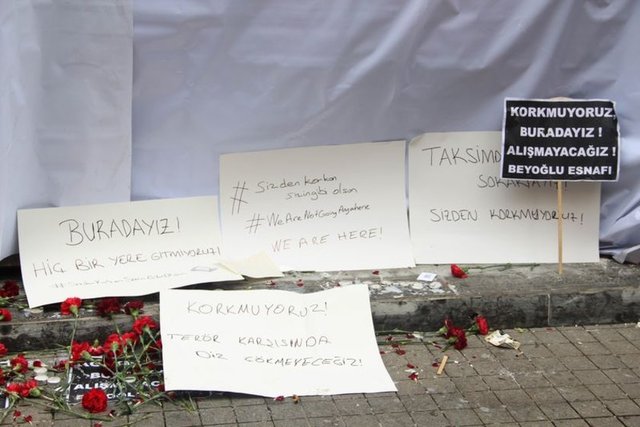 BURADAYIZ!
HİÇ BİR YERE GİTMİYORUZ!
# Sizden korkan
sizin gibi olsun
#WeAreNotGoingAnywhere
WE ARE HERE!
TAKSİMDE
SOKAKTAYIZ!
SİZDEN KORKMUYORUZ!
KORKMUYORUZ,
BURADAYIZ !
ALIŞMAYACAĞIZ !
BEYOĞLU ESNAFI
KORKMUYORUZ!
TERÖR KARŞISINDA
DİZ ÇÖKMEYECEĞİZ!